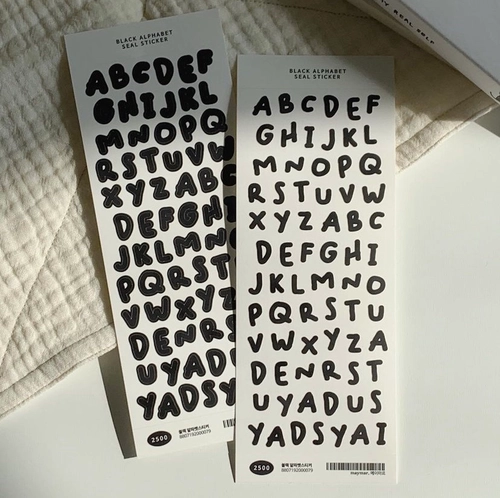 BLACK ALPHABET
SEAL STICKER
ABCDEF
GHIJKL
MNOPQ
RSTUVW
XYZAB
DEFGH
JKLMN
PQRST
VWXYZ
DENR
UYADU
YADSY
2500
블랙 알파벳스티커
8807192000079
BLACK ALPHABET
SEAL STICKER
ABCDEF
GHIJKL
MNOPQ
RSTUVW
XYZABC
DEFGHI
JKLMNO
PQRSTU
VWXYZA
DENRST
UYADUS
YADSYAI
2500
블랙 알파벳스티커
8807192000079
REAL SELF